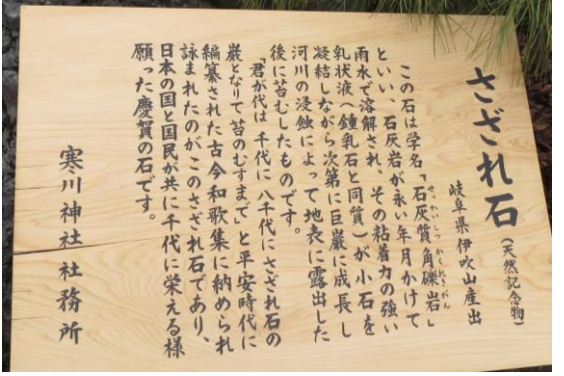 さざれ石(天然記念物)
岐阜県伊吹山産出
この石は学名「石灰質角礫岩」
せっかいしつかくれきがん
といい、石灰岩が永い年月かけて
雨水で溶解され、その粘着力の強い
乳状液(鍾乳石と同質)が小石を
凝結しながら次第に巨巌に成長し
河川の浸蝕によって地表に露出した
後に苔むしたものです。
「君が代は 千代に 八千代にさざれ石の
巌となりて 苔のむすまで」と平安時代に
編纂された古今和歌集に納められ
詠まれたのがこのさざれ石であり、
日本の国と国民が共に千代に栄える様
願った慶賀の石です。
寒川神社 社務所